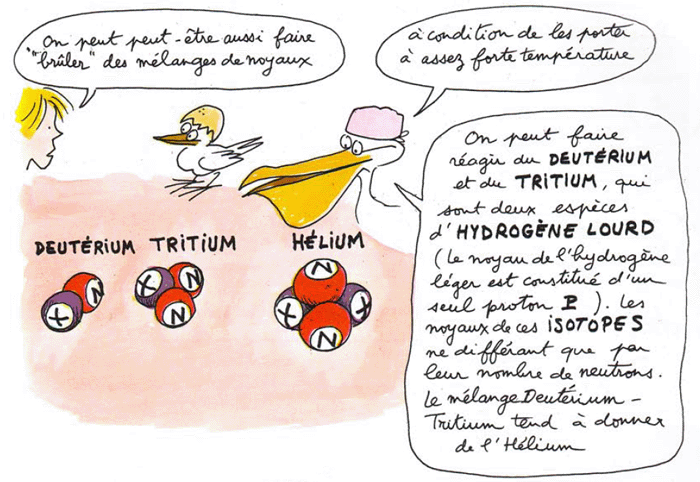 On peut peut-être aussi faire
"brûler" des mélanges de noyaux
à condition de les porter
à assez forte température
On peut faire
réagir du DEUTÉRIUM
et du TRITIUM, qui
sont deux espèces
d'HYDROGÈNE LOURD
(le noyau de l'hydrogène
léger est constitué d'un
seul proton P). Les
noyaux de ces ISOTOPES
ne différant que par
leur nombre de neutrons.
Le mélange Deutérium-
Tritium tend à donner
de l'Hélium
DEUTÉRIUM TRITIUM HÉLIUM
X N
X N N
N X X N